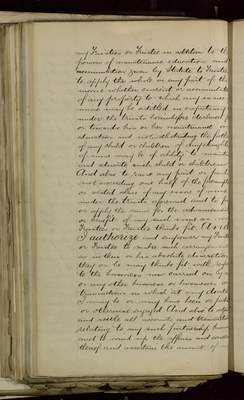 my Trustees or Trustee in addition to the
powers of maintenance education and
accumulation given by Statute to Trustees
to apply the whole or any part of the
income whether current or accumulated
of any property to which any minor
may be entitled in expectancy
under the trusts hereinbefore declared for
or towards his or her maintenance or
education and notwithstanding the father
of any child or children of any daughter
of mine may be of ability to maintain
and educate such child or children
And also to raise any part or parts
not exceeding one half of the presumptive
or vested share of any issue of mine
under the trusts aforesaid and to pay
or apply the same for the advancement
or benefit of any such issue as my
Trustees or Trustee think fit And
I authorize and empower my Trustees
or Trustee to make such arrangements
as in their or his absolute discretion
they or he may think fit with regard
to the business now carried on by me
or any other business or businesses or
in which at my death
I may be or may have been a partner
or otherwise engaged And also to adjust
and settle all accounts and transactions
relating to any such partnership business
and to wind up the affairs and concerns
thereof and ascertain the amount of my